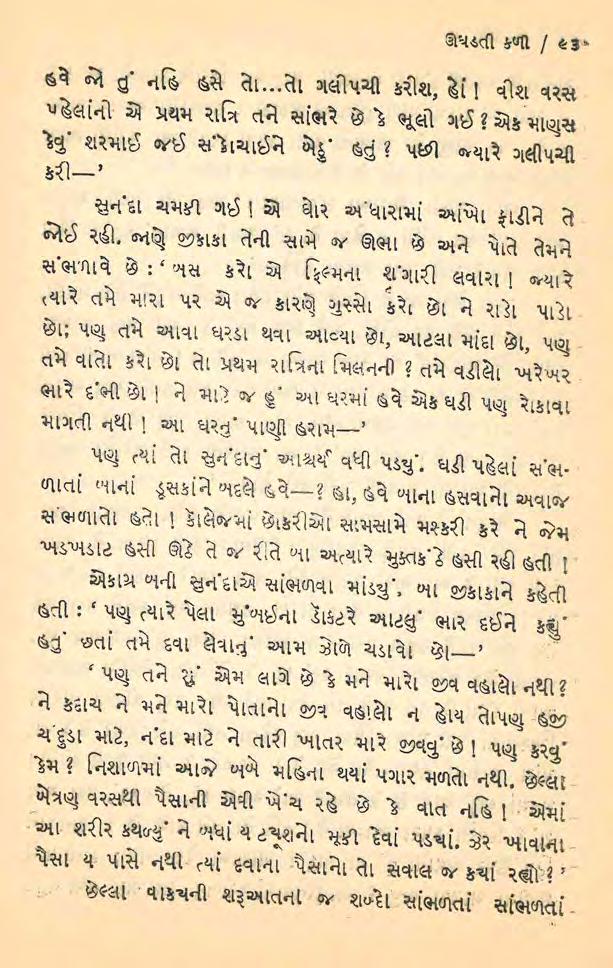 ઊઘડતી કળી / ૯૩
હવે જો તું નહિ હસે તો...તો ગલીપચી કરીશ, હોં ! વીશ વરસ
પહેલાંની એ પ્રથમ રાત્રિ તને સાંભરે છે કે ભૂલી ગઈ ? એક માણસ
કેવું શરમાઈ જઈ સંકોચાઈને બેઠું હતું ? પછી જ્યારે ગલીપચી
કરી—’
સુનંદા ચમકી ગઈ ! એ ઘોર અંધારામાં આંખો ફાડીને તે
જોઈ રહી. જાણે જીકાકા તેની સામે જ ઊભા છે અને પોતે તેમને
સંભળાવે છે : ‘બસ કરો એ ફિલ્મના શૃંગારી લવારા ! જ્યારે
ત્યારે તમે મારા પર એ જ કારણે ગુસ્સો કરો છો ને રાડો પાડો
છો; પણ તમે આવા ઘરડા થવા આવ્યા છો, આટલા માંદા છો, પણ
તમે વાતો કરો છો તો પ્રથમ રાત્રિના મિલનની ? તમે વડીલો ખરેખર
ભારે દંભી છો ! ને માટે જ હું આ ઘરમાં હવે એક ઘડી પણ રોકાવા
માગતી નથી ! આ ઘરનું પાણી હરામ—’
પણ ત્યાં તો સુનંદાનું આશ્ચર્ય વધી પડ્યું. ઘડી પહેલાં સંભ-
ળાતાં બાનાં ડૂસકાંને બદલે હવે—? હા, હવે બાના હસવાનો અવાજ
સંભળાતો હતો ! કૉલેજમાં છોકરીઓ સામસામે મશ્કરી કરે ને જેમ
ખડખડાટ હસી ઊઠે તે જ રીતે બા અત્યારે મુક્તકંઠે હસી રહી હતી !
એકાગ્ર બની સુનંદાએ સાંભળવા માંડ્યું, બા જીકાકાને કહેતી
હતી : ‘પણ ત્યારે પેલા મુંબઈના ડૉક્ટરે આટલું ભાર દઈને કહ્યું
હતું છતાં તમે દવા લેવાનું આમ ઝોળે ચડાવો છો—’
‘પણ તને શું એમ લાગે છે કે મને મારો જીવ વહાલો નથી ?
ને કદાચ ને મને મારો પોતાનો જીવ વહાલો ન હોય તોપણ હજી
ચંદુડા માટે, નંદા માટે ને તારી ખાતર મારે જીવવું છે ! પણ કરવું
કેમ ? નિશાળમાં આજે બબે મહિના થયાં પગાર મળતો નથી. છેલ્લા
બેત્રણ વરસથી પૈસાની એવી ખેંચ રહે છે કે વાત નહિ ! એમાં
આ શરીર કથળ્યું ને બધાં ય ટ્યૂશનો મૂકી દેવાં પડ્યાં. ઝેર ખાવાના
પૈસા ય પાસે નથી ત્યાં દવાના પૈસાનો તો સવાલ જ ક્યાં રહ્યો ? ’
છેલ્લા વાક્યની શરૂઆતના જ શબ્દો સાંભળતાં સાંભળતાં